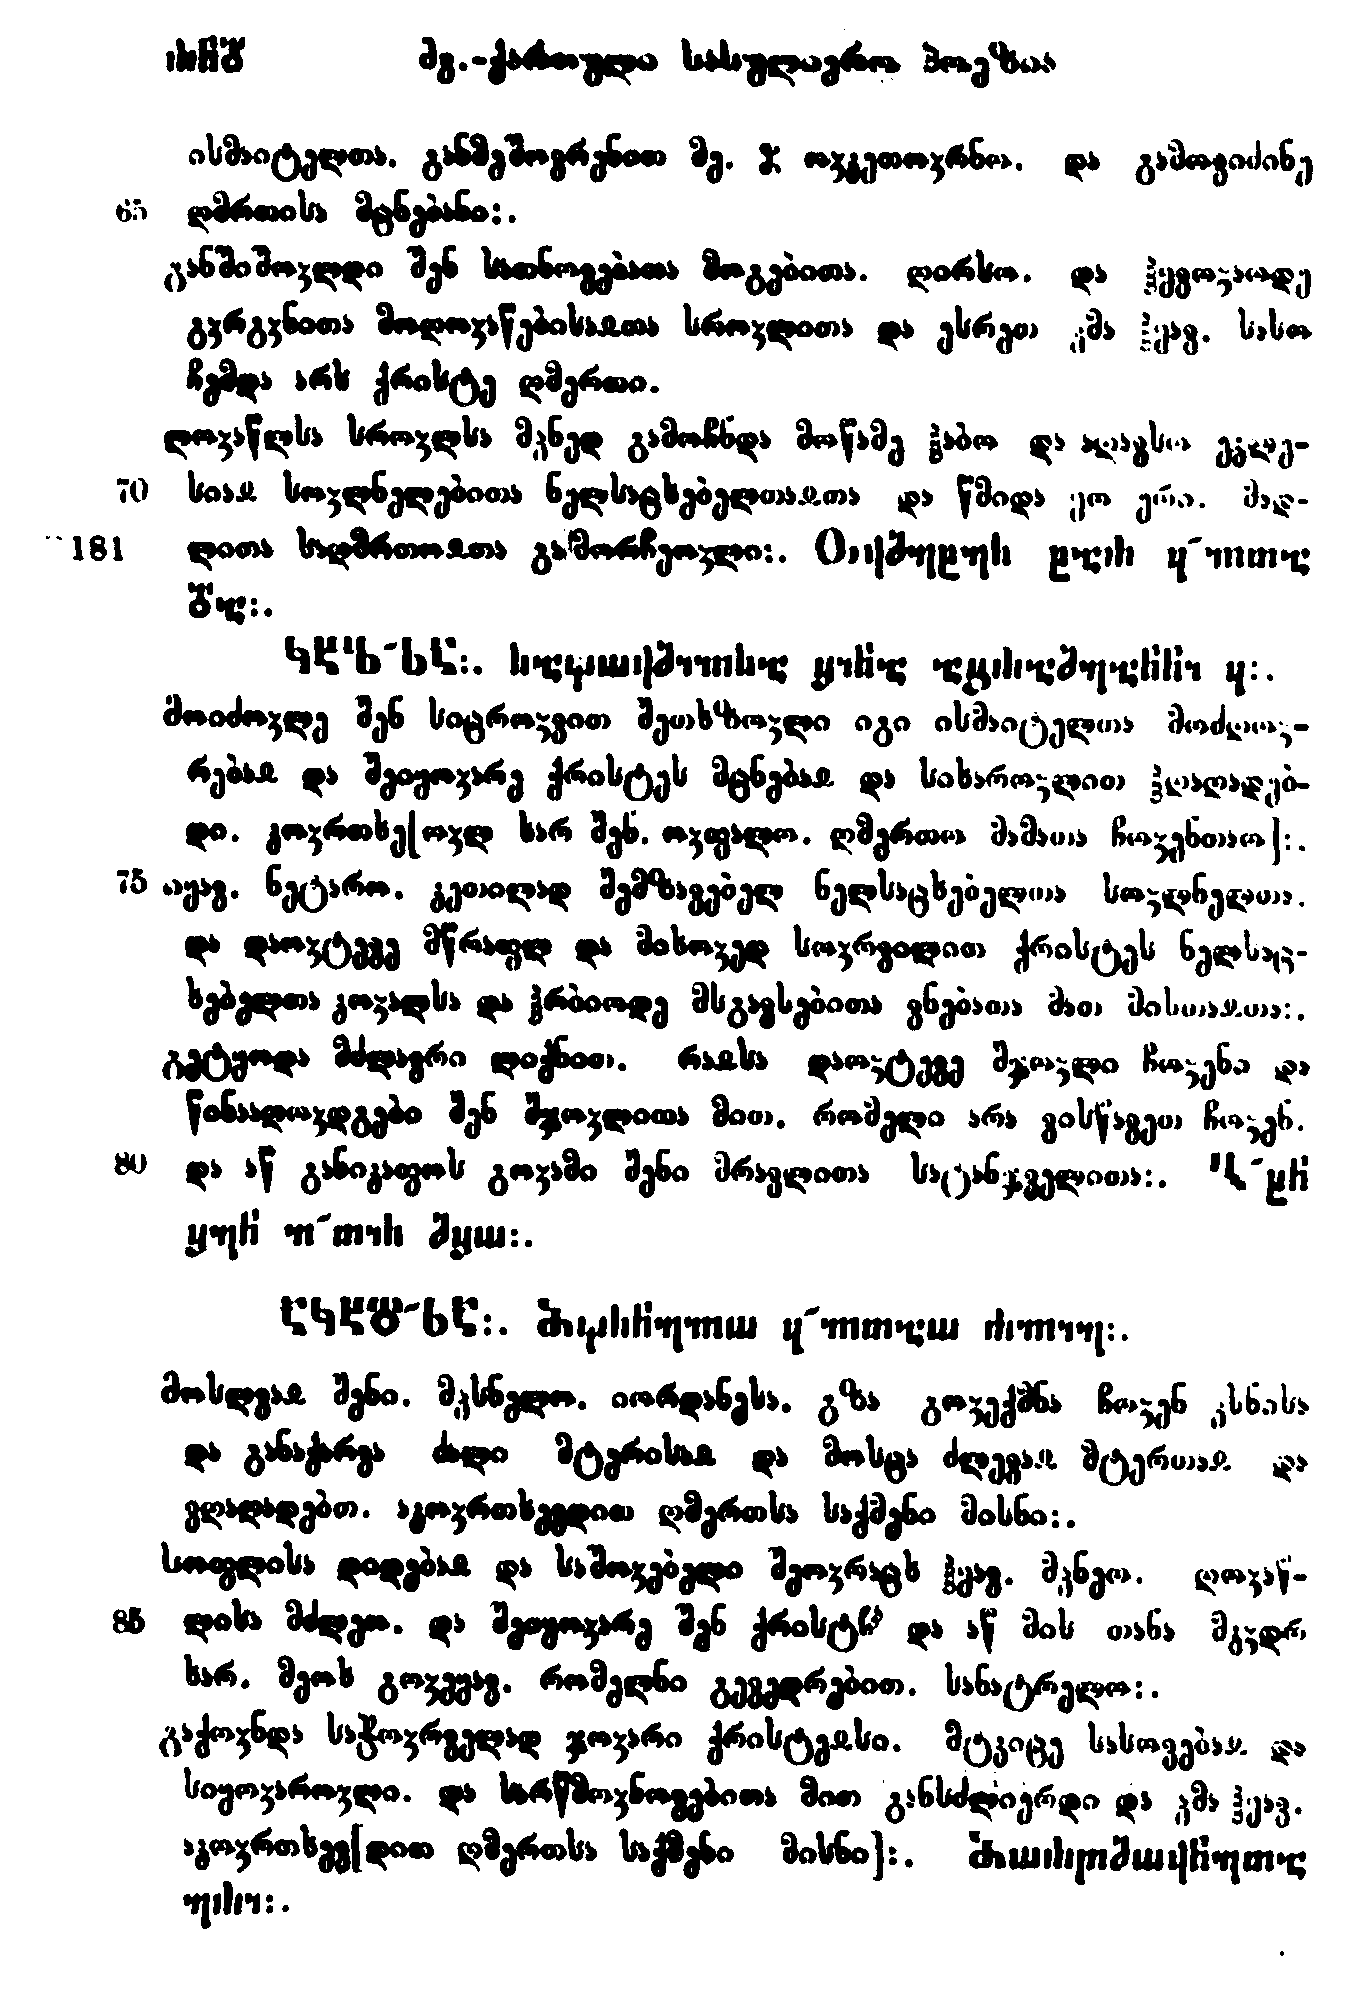 ძვ.-ქართული სასულიერო პოეზია
ისმაიტელთა. განმეშოვრენით მე. ჯ ოჳგეთოჳრნო. და გამოვიძინე
65 ღმრთისა მცნებანი:.
განშიშოჳლდი შენ სათნოვებათა მოგებითა. ღირსო. და ჰევოჳაოდე
გჳრგჳნითა მოღოჳაწებისაჲთა სროჳლითა და ესრეთ კმა ჰყავ. სასო
ჩემდა არს ქრისტე ღმერთი.
ღოჳაწლსა სროჳლსა მჴნედ გამოჩნდა მოწამე ჰაბო და აღავსო ეკლე-
70 სიაჲ სოჳლნელებითა ნელსაცხებელთაჲთა და წმიდა ყო ერი. მად-
181 ლითა საღმრთოჲთა გამორჩეოჳლი:.
მოიძოჳლე შენ სიცროჳვით შეთხზოჳლი იგი ისმაიტელთა მოძღოჳ-
რებაჲ და შეიყოჳარე ქრისტეს მცნებაჲ და სიხაროჳლით ჰღაღადებ-
დი. კოჳრთხე[ოჳლ ხარ შენ. ოჳფალო. ღმერთო მამათა ჩოჳენთაო]:.
75 იყავ. ნეტარო. კეთილად შემზავებელ ნელსაცხებელთა სოჳლნელთა.
და დაოჳტევე მწრაფლ და მიხოჳედ სოჳრვილით ქრისტეს ნელსაც-
ხებელთა კოჳალსა და ჰრბიოდე მსგავსებითა ვნებათა მათ მისთაჲთა:.
გეტყოდა მძლავრი ლიქნით. რაჲსა დაოჳტევე შჯოჳლი ჩოჳენი და
წინააღოჳდგები შენ შჯოჳლითა მით. რომელი არა გისწავეთ ჩოჳენ.
80 და აწ განიკაფოს გოჳამი შენი მრავლითა სატანჯველითა:.
მოსლვაჲ შენი. მჴსნელო. იორდანესა. გზა გოჳექმნა ჩოჳენ ჴსნისა
და განაქარვა ძალი მტერისაჲ და მოსცა ძლევაჲ მტერთაჲ და
ვღაღადებთ. აკოჳრთხევდით ღმერთსა საქმენი მისნი:.
სოფლისა დიდებაჲ და საშოჳებელი შეოჳრაცხ ჰყავ. მჴნეო. ღოჳაწ-
85 ლისა მძლეო. და შეიყოჳარე შენ ქრისტჱ და აწ მის თანა მკჳდრ
ხარ. მეოხ გოჳეყავ. რომელნი გევედრებით. სანატრელო:.
გაქოჳნდა საჭოჳრველად ჯოჳარი ქრისტეჲსი. მტკიცე სასოვებაჲ და
სიყოჳაროჳლი. და სარწმოჳნოვებითა მით განსძლიერდი და კმა ჰყავ.
აკოჳრთხევ[დით ღმერთსა საქმენი მისნი]:.